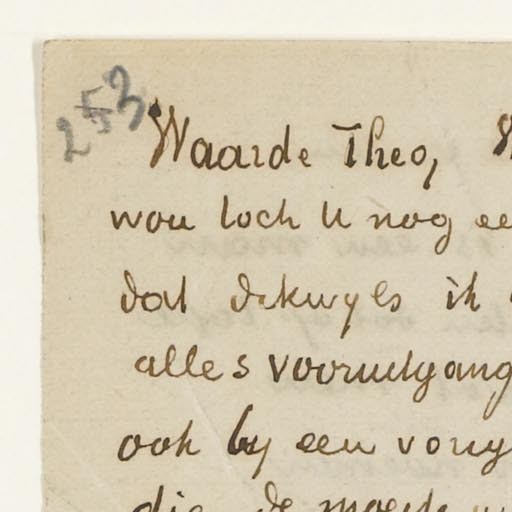 253
Waarde Theo,
wou toch U nog
dat dikwyls ik
alles vooruitgang
ook by een vorig
die de moeite